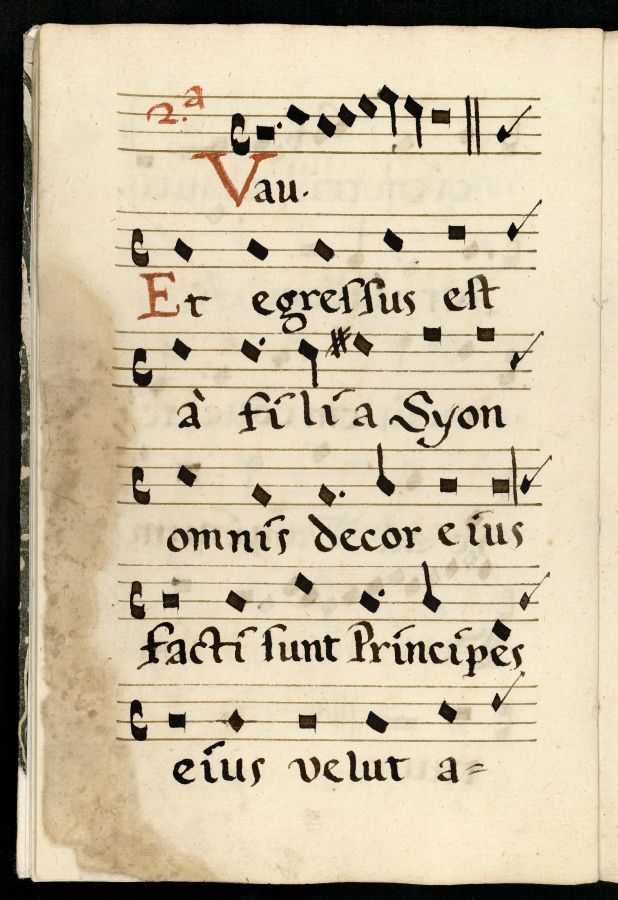 2.a
Vau.
Et egreſſus eſt
à filia Syon
omnis decor eius
facti ſunt Principes
eius velut a=